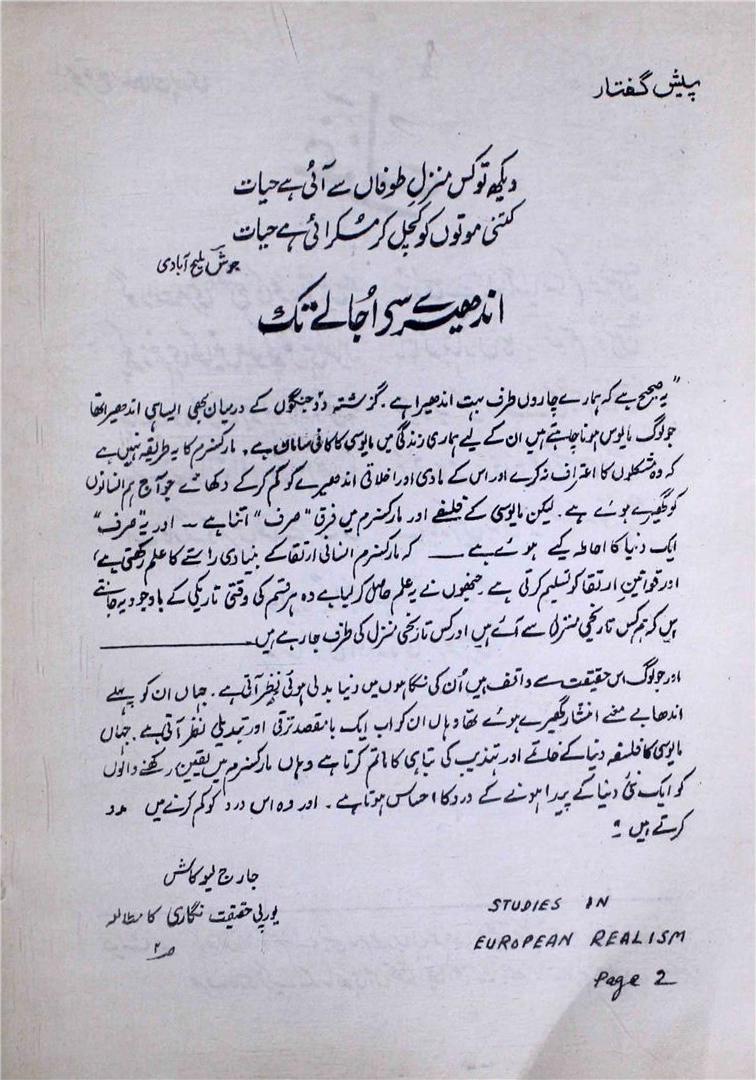 پیش گفتار
دیکھ تو کس منزلِ طوفاں سے آئی ہے حیات
کتنی موتوں کو کچل کر مسکرائی ہے حیات
جوش ملیح آبادی
اندھیرے سے اُجالے تک
"یہ صحیح ہے کہ ہمارے چاروں طرف بہت اندھیرا ہے۔ گزشتہ دو جنگوں کے درمیان بھی ایسا ہی اندھیرا تھا
جو لوگ مایوس ہونا چاہتے ہیں ان کے لیے ہماری زندگی میں مایوسی کا کافی سامان ہے۔ مارکسزم کا یہ طریقہ نہیں ہے
کہ وہ مشکلوں کا اعتراف نہ کرے اور اس کے مادی اور اخلاقی اندھیرے کو کم کر کے دکھائے جو آج ہم انسانوں
کو گھیرے ہوئے ہے۔ لیکن مایوسی کے فلسفے اور مارکسزم میں فرق "صرف" اتنا ہے — اور یہ "صرف"
ایک دنیا کا احاطہ کیے ہوئے ہے — کہ مارکسزم انسانی ارتقا کے بنیادی راستے کا علم رکھتی ہے،
اور قوانینِ ارتقا کو تسلیم کرتی ہے۔ جنھوں نے یہ علم حاصل کر لیا ہے وہ ہر قسم کی وقتی تاریکی کے باوجود یہ جانتے
ہیں کہ ہم کس تاریخی منزل سے آئے ہیں اور کس تاریخی منزل کی طرف جا رہے ہیں۔
اور جو لوگ اس حقیقت سے واقف ہیں اُن کی نگاہوں میں دنیا بدلی ہوئی نظر آتی ہے۔ جہاں ان کو پہلے
اندھا بے معنے انتشار گھیرے ہوئے تھا وہاں ان کو اب ایک با مقصد ترقی اور تبدیلی نظر آتی ہے۔ جہاں
مایوسی کا فلسفہ دنیا کے خاتمے اور تہذیب کی تباہی کا ماتم کرتا ہے وہاں مارکسزم میں یقین رکھنے والوں
کو ایک نئی دنیا کے پیدا ہونے کے درد کا احساس ہوتا ہے۔ اور وہ اس درد کو کم کرنے میں مدد
کرتے ہیں۔"
جارج لیوکاش
یورپی حقیقت نگاری کا مطالعہ
ص ۲
STUDIES IN
EUROPEAN REALISM
Page 2